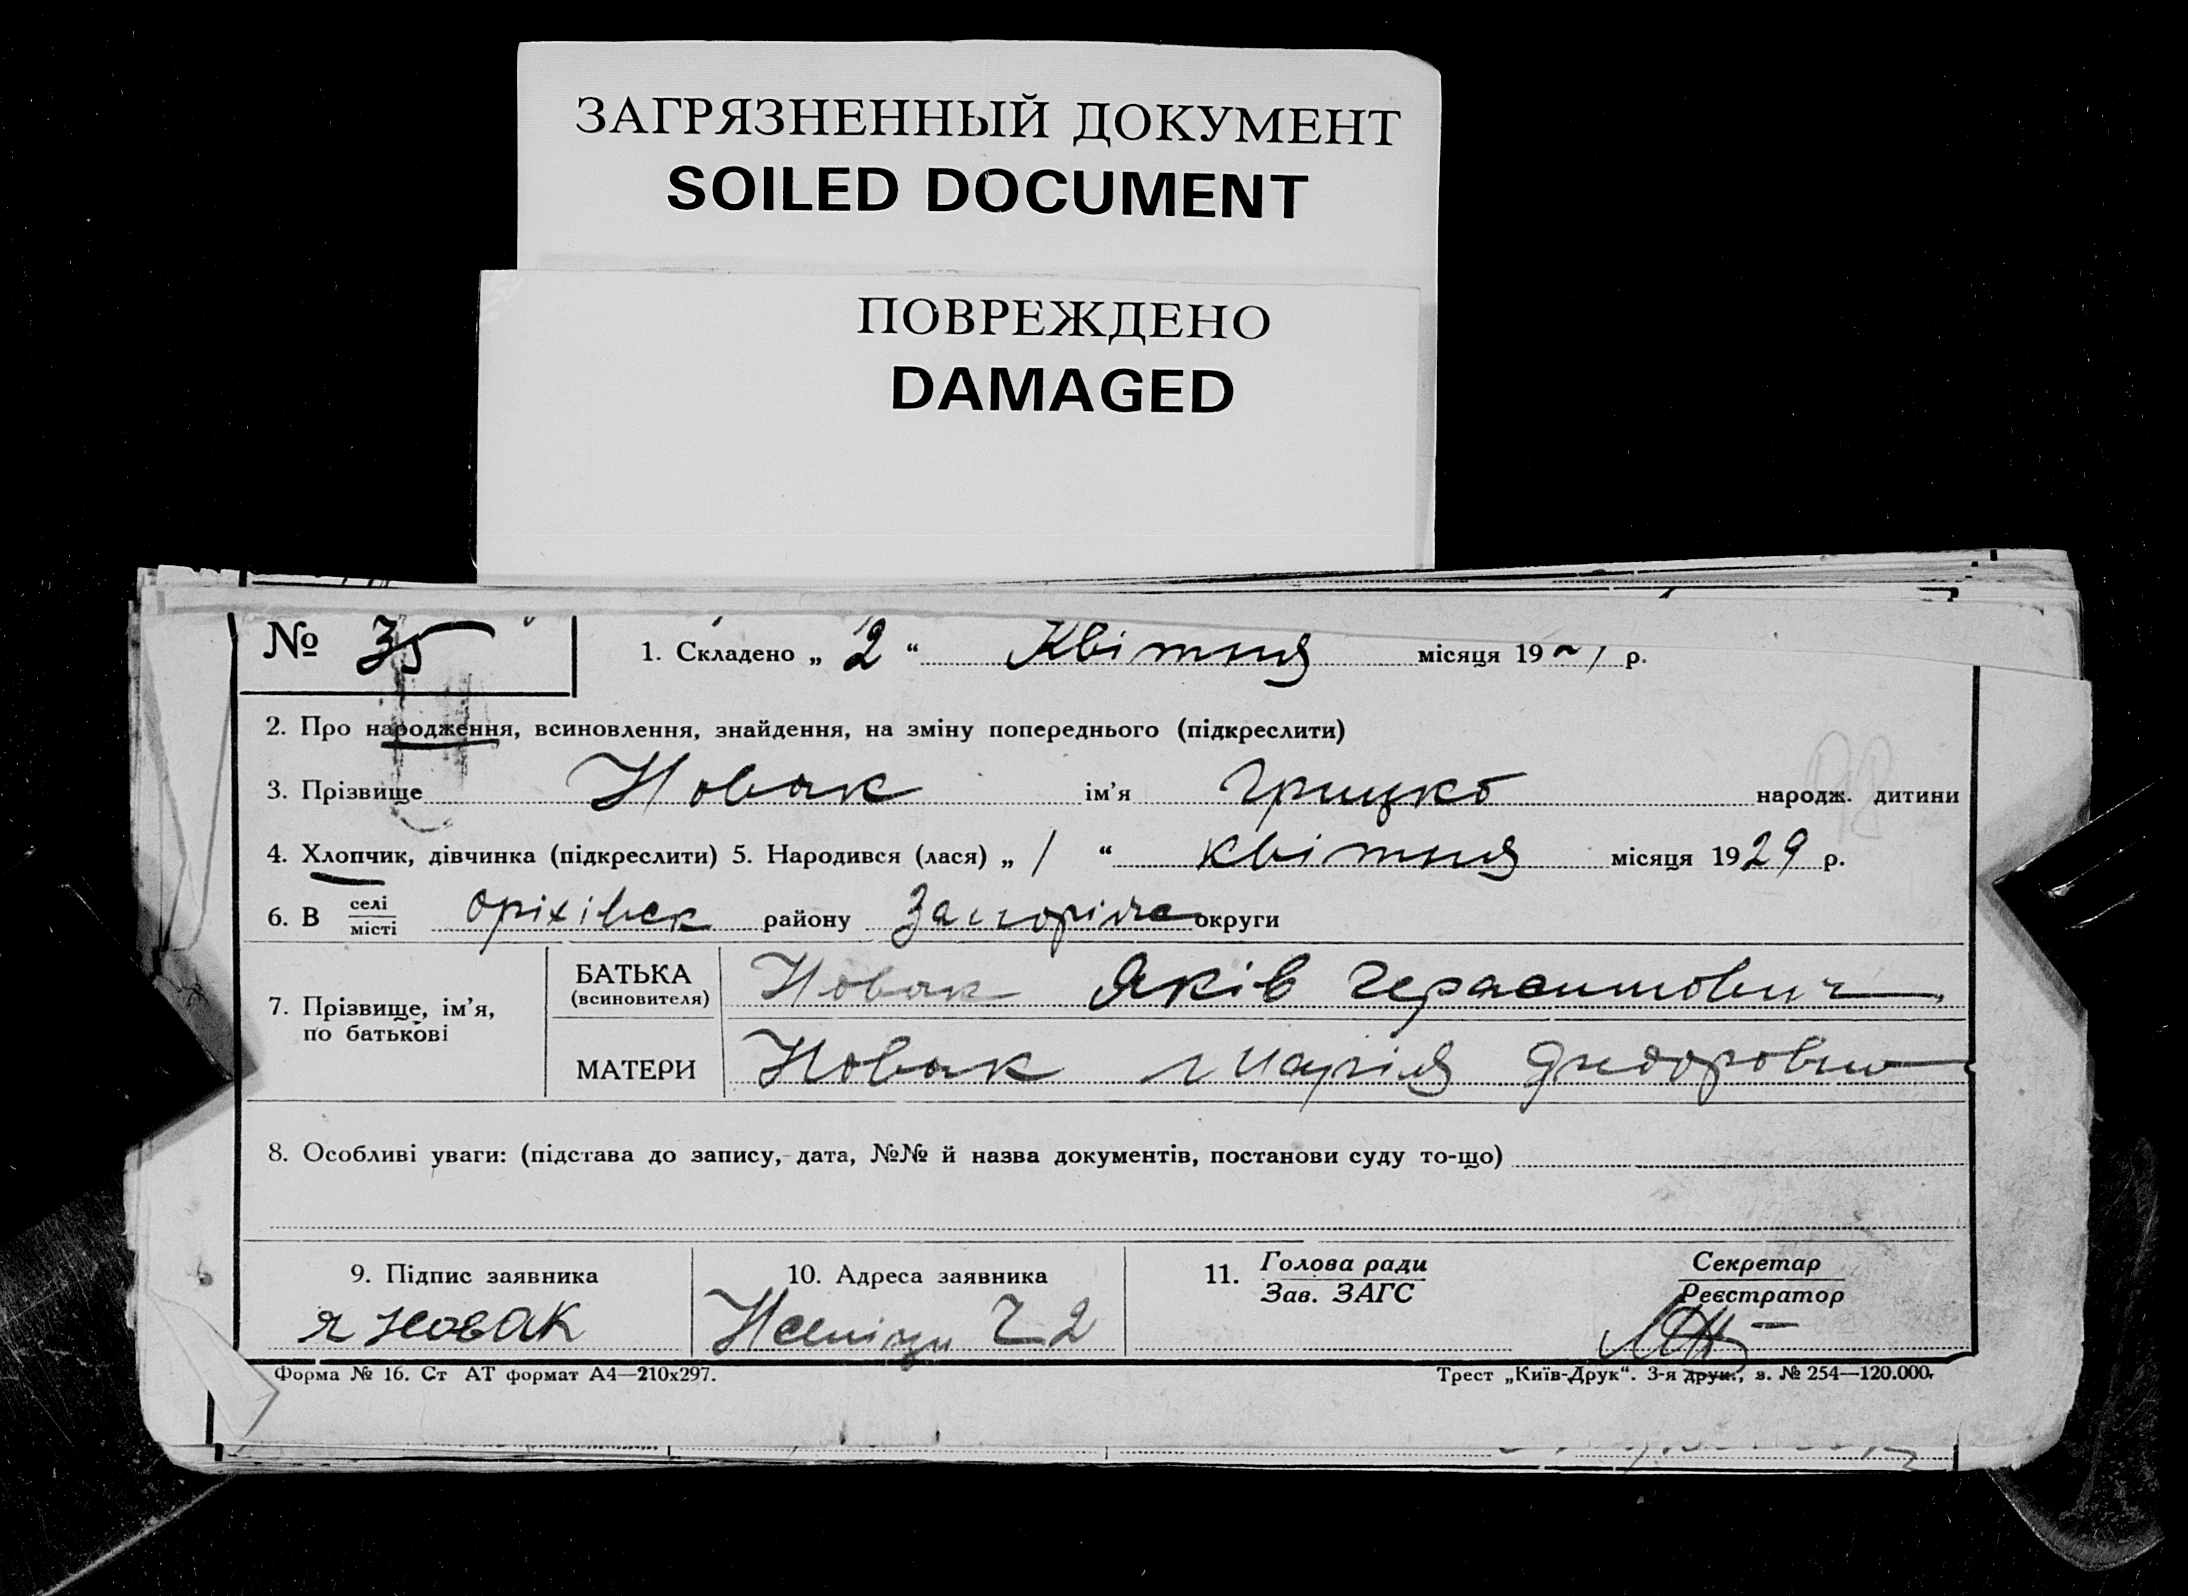 ЗАГРЯЗНЕННЫЙ ДОКУМЕНТ
SOILED DOCUMENT
ПОВРЕЖДЕНО
DAMAGED
№ 35
1. Складено „ 2 “ Квітня місяця 19 р.
2. Про народження, всиновлення, знайдення, на зміну попереднього (підкреслити)
3. Прізвище Новак ім’я Грицко народж. дитини
4. Хлопчик, дівчинка (підкреслити) 5. Народився (лася) „ 1 “ квітня місяця 1929 р.
6. В селі місті Оріхівск району округи
7. Прізвище, ім’я, по батькові
БАТЬКА (всиновителя) Новак Яків Герасимович
МАТЕРИ Новак Марія
8. Особливі уваги: (підстава до запису, дата, №№ й назва документів, постанови суду то-що)
9. Підпис заявника
я Новак
10. Адреса заявника
2
11. Голова ради
Зав. ЗАГС
Секретар
Реєстратор
Форма № 16. Ст АТ формат А4—210х297.
Трест „Київ-Друк“. 3-я друк., з. № 254—120.000.